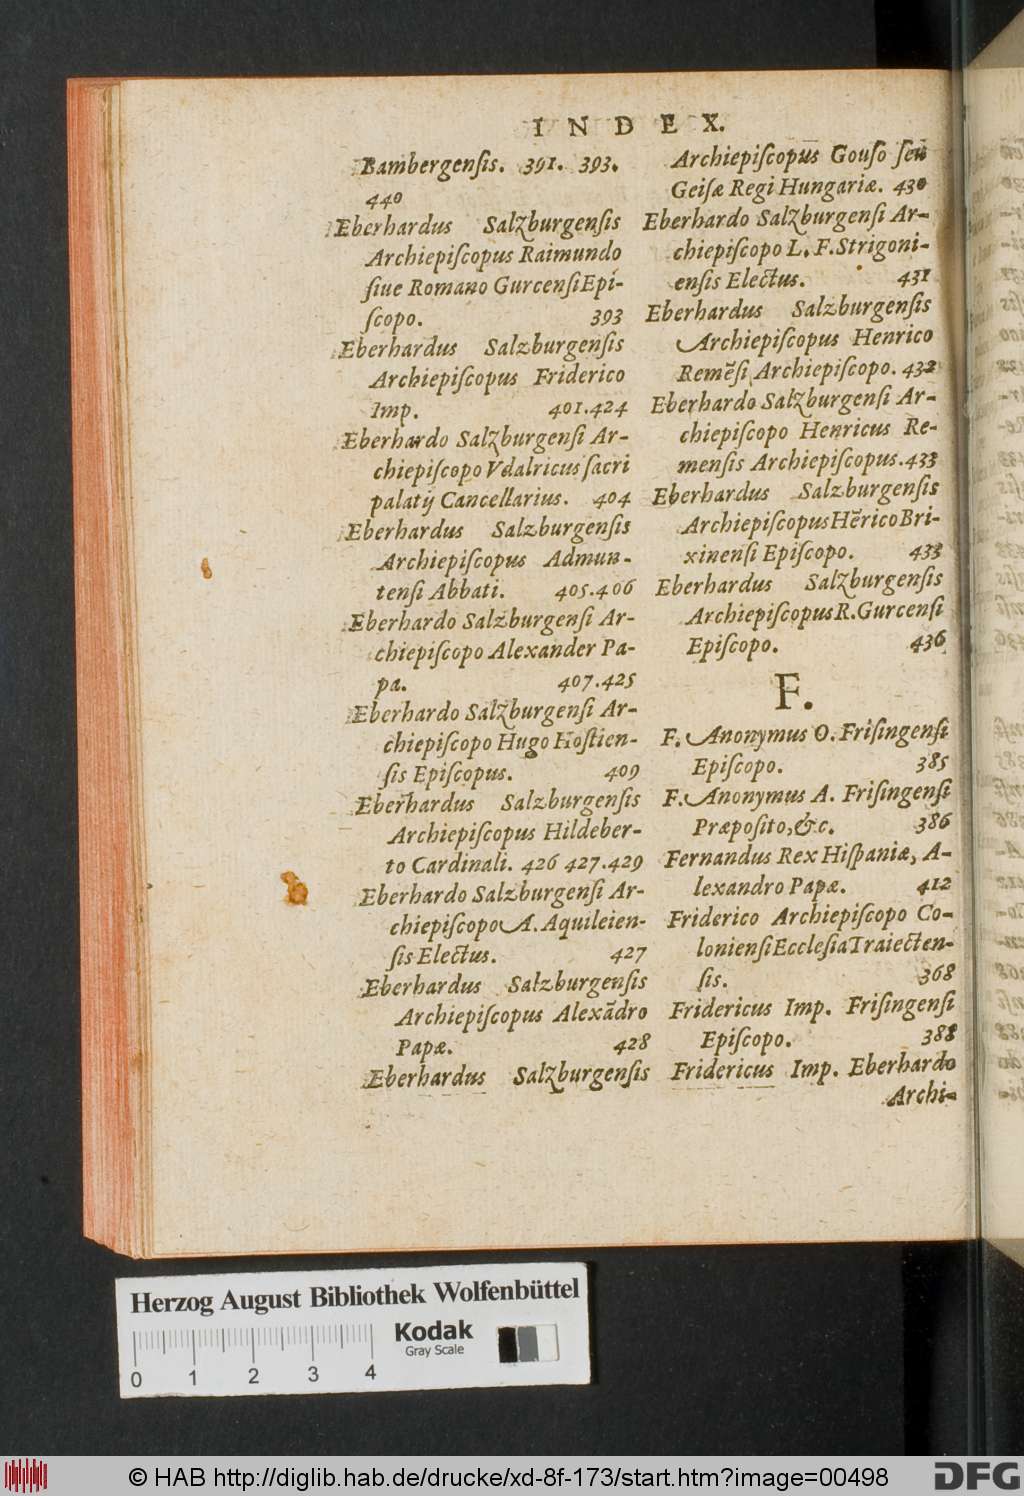 INDEX.
Bambergenſis. 391. 393.
440
Eberhardus Salzburgenſis
Archiepiſcopus Raimundo
ſiue Romano Gurcenſi Epi-
ſcopo. 393
Eberhardus Salzburgenſis
Archiepiſcopus Friderico
Imp. 401.424
Eberhardo Salzburgenſi Ar-
chiepiſcopo Vdalricus ſacri
palatij Cancellarius. 404
Eberhardus Salzburgenſis
Archiepiſcopus Admun-
tenſi Abbati. 405.406
Eberhardo Salzburgenſi Ar-
chiepiſcopo Alexander Pa-
pa. 407.425
Eberhardo Salzburgenſi Ar-
chiepiſcopo Hugo Hoſtien-
ſis Epiſcopus. 409
Eberhardus Salzburgenſis
Archiepiſcopus Hildeber-
to Cardinali. 426 427.429
Eberhardo Salzburgenſi Ar-
chiepiſcopo A. Aquileien-
ſis Electus. 427
Eberhardus Salzburgenſis
Archiepiſcopus Alexãdro
Papæ. 428
Eberhardus Salzburgenſis
Archiepiſcopus Gouſo ſeu
Geiſæ Regi Hungariæ. 430
Eberhardo Salzburgenſi Ar-
chiepiſcopo L. F. Strigoni-
enſis Electus. 431
Eberhardus Salzburgenſis
Archiepiſcopus Henrico
Remẽſi Archiepiſcopo. 432
Eberhardo Salzburgenſi Ar-
chiepiſcopo Henricus Re-
menſis Archiepiſcopus. 433
Eberhardus Salzburgenſis
Archiepiſcopus Hẽrico Bri-
xinenſi Epiſcopo. 433
Eberhardus Salzburgenſis
Archiepiſcopus R. Gurcenſi
Epiſcopo. 436
F.
F. Anonymus O. Friſingenſi
Epiſcopo. 385
F. Anonymus A. Friſingenſi
Præpoſito, &c. 386
Fernandus Rex Hiſpaniæ, A-
lexandro Papæ. 412
Friderico Archiepiſcopo Co-
lonienſi Eccleſia Traiecten-
ſis. 368
Fridericus Imp. Friſingenſi
Epiſcopo. 388
Fridericus Imp. Eberhardo
Archi-
Herzog August Bibliothek Wolfenbüttel
Kodak
Gray Scale
0 1 2 3 4
© HAB http://diglib.hab.de/drucke/xd-8f-173/start.htm?image=00498
DFG